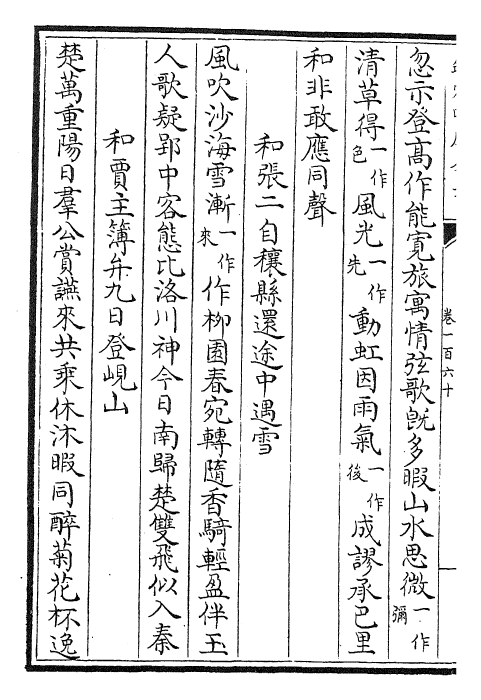 卷一百六十
忽示登髙作能寛旅寓情弦歌旣多暇山水思微一作彌
清草得一作色風光一作先動虹因雨氣一作後成謬承巴里
和非敢應同聲
和張二自穰縣還途中遇雪
風吹沙海雪漸一作來作柳園春宛轉隨香騎輕盈伴玉
人歌疑郢中客態比洛川神今日南歸楚雙飛似入秦
和賈主簿弁九日登峴山
楚萬重陽日羣公賞讌來共乘休沐暇同醉菊花杯逸